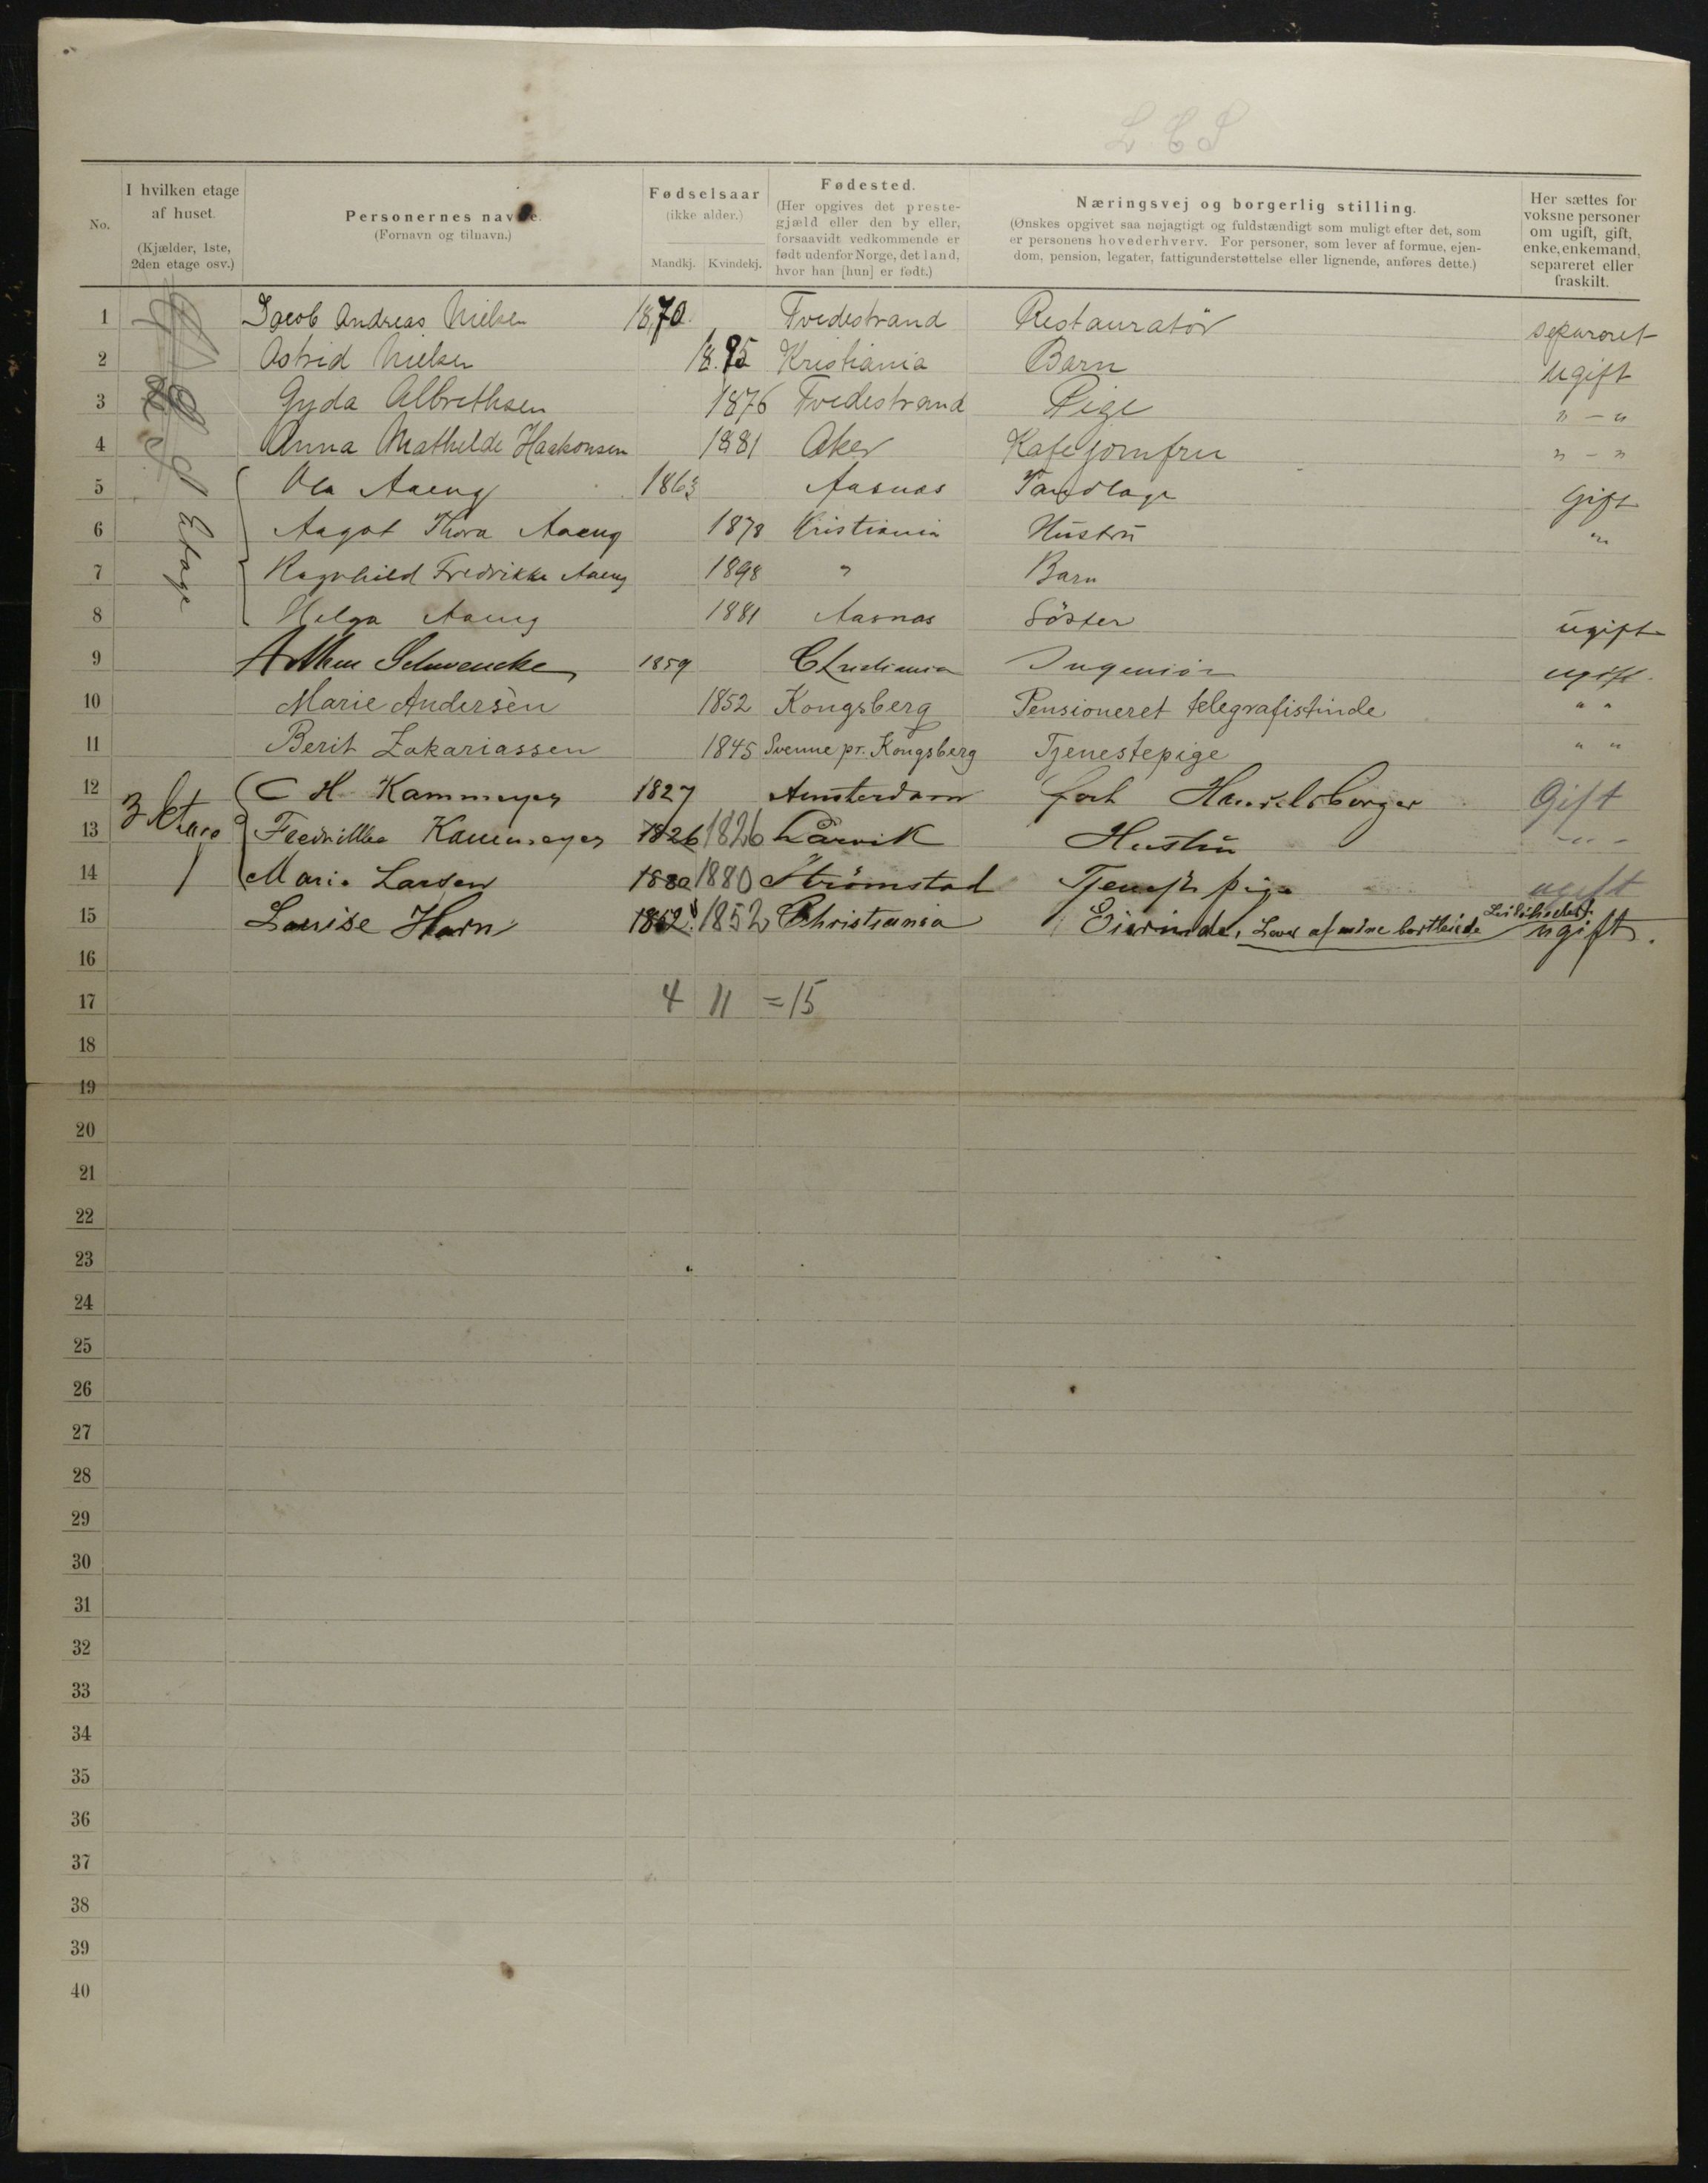 L C S
No.
I hvilken etage
af huset.
(Kjælder, 1ste,
2den etage osv.)
Personernes navne.
(Fornavn og tilnavn.)
Fødselsaar
(ikke alder.)
Mandkj. Kvindekj.
Fødested.
(Her opgives det preste-
gjæld eller den by eller,
forsaavidt vedkommende er
født udenfor Norge, det land,
hvor han [hun] er født.)
Næringsvej og borgerlig stilling.
(Ønskes opgivet saa nøjagtigt og fuldstændigt som muligt efter det, som
er personens hovederhverv. For personer, som lever af formue, ejen-
dom, pension, legater, fattigunderstøttelse eller lignende, anføres dette.)
Her sættes for
voksne personer
om ugift, gift,
enke, enkemand,
separeret eller
fraskilt.
1 Jacob Andreas Nielsen 1870. Tvedestrand Restauratör separeret
2 Astrid Nielsen 18.95 Kristiania Barn ugift
3 Gyda Albrethsen 1876 Tvedestrand Pige " - "
4 Anna Mathilde Haakonsen 1881 Aker Kafejomfru " - "
5 Ola Aaeng 1863 Aasnas Tandlæge Gift
Etage
6 Aagot Thora Aaeng 1878 Kristiania Hustru "
7 Ragnhild Fredrikke Aaeng 1898 " Barn
8 Helga Aaeng 1881 Aasnas Söster ugift
9 Arthur Schwencke 1859 Christiania Ingeniör ugift.
10 Marie Andersen 1852 Kongsberg Pensioneret telegrafistinde " "
11 Berit Zakariassen 1845 Svenne pr. Kongsberg Tjenestepige " "
12 C H Kammeyer 1827 Amsterdam fort Handelsborger Gift
3 Etage
13 Fredrikke Kammeyer 1826 1826 Larvik Hustru - " -
14 Marie Larsen 1880 1880 Strömstad Tjenestepige ugift
15 Louise Horn 1852 1852 Christiania Eierinde, Lever af mine bortleiede Leiligheder. ugift.
16
17 4 11 = 15
18
19
20
21
22
23
24
25
26
27
28
29
30
31
32
33
34
35
36
37
38
39
40